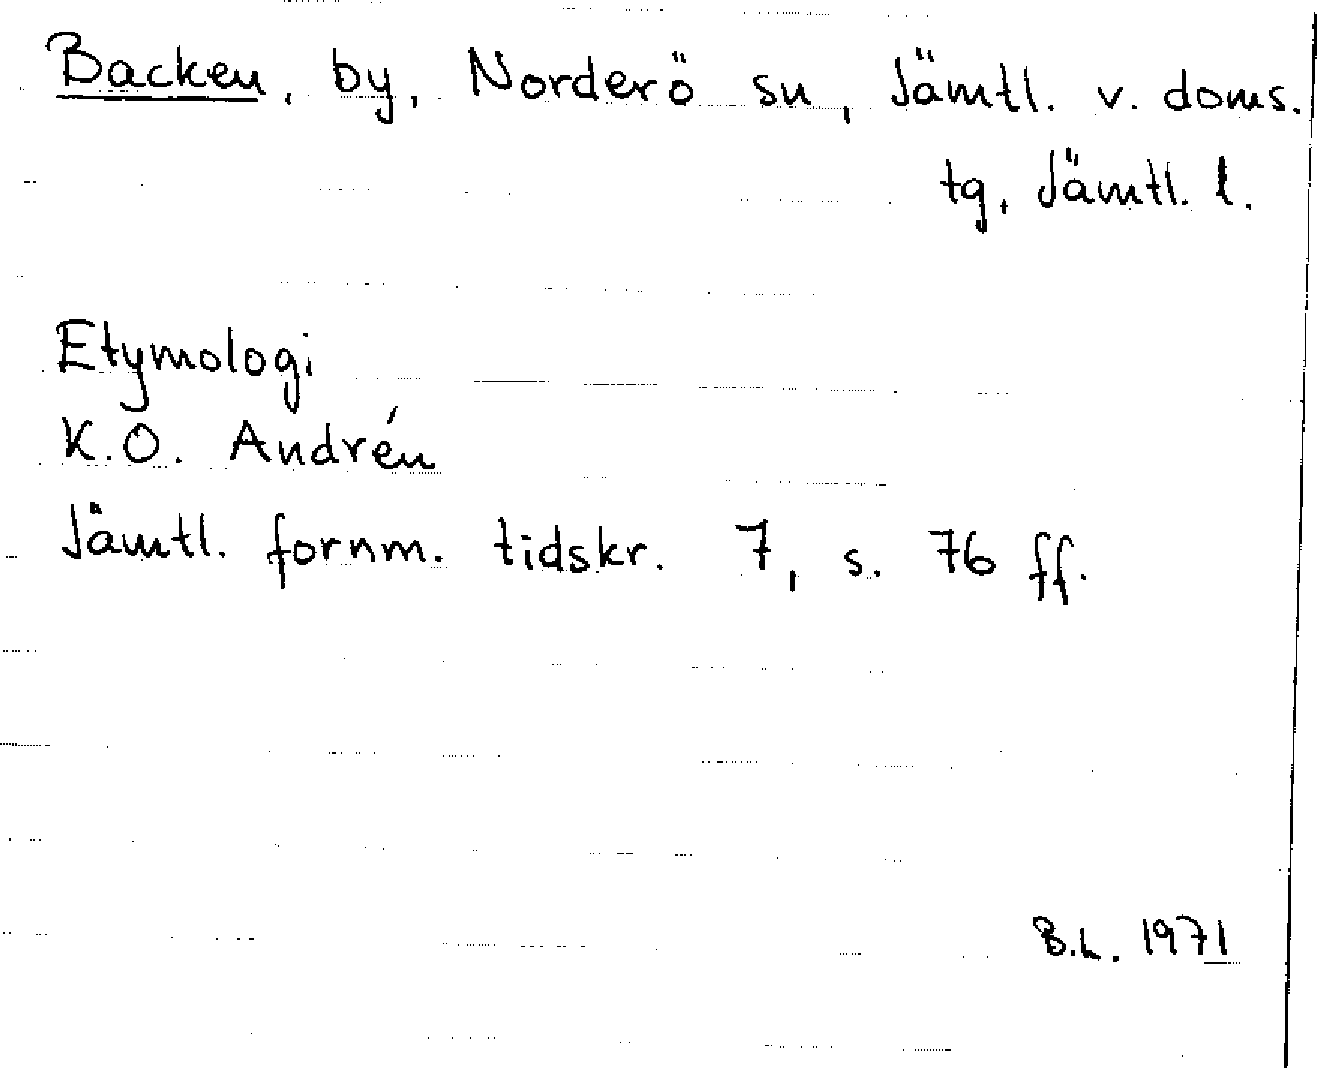 Backen, by, Norderö sn, Jämtl. v. doms.
tg, Jämtl. l.
Etymologi
K.O. Andrén
Jämtl. fornm. tidskr. 7, s. 76 ff.
B.L. 1971